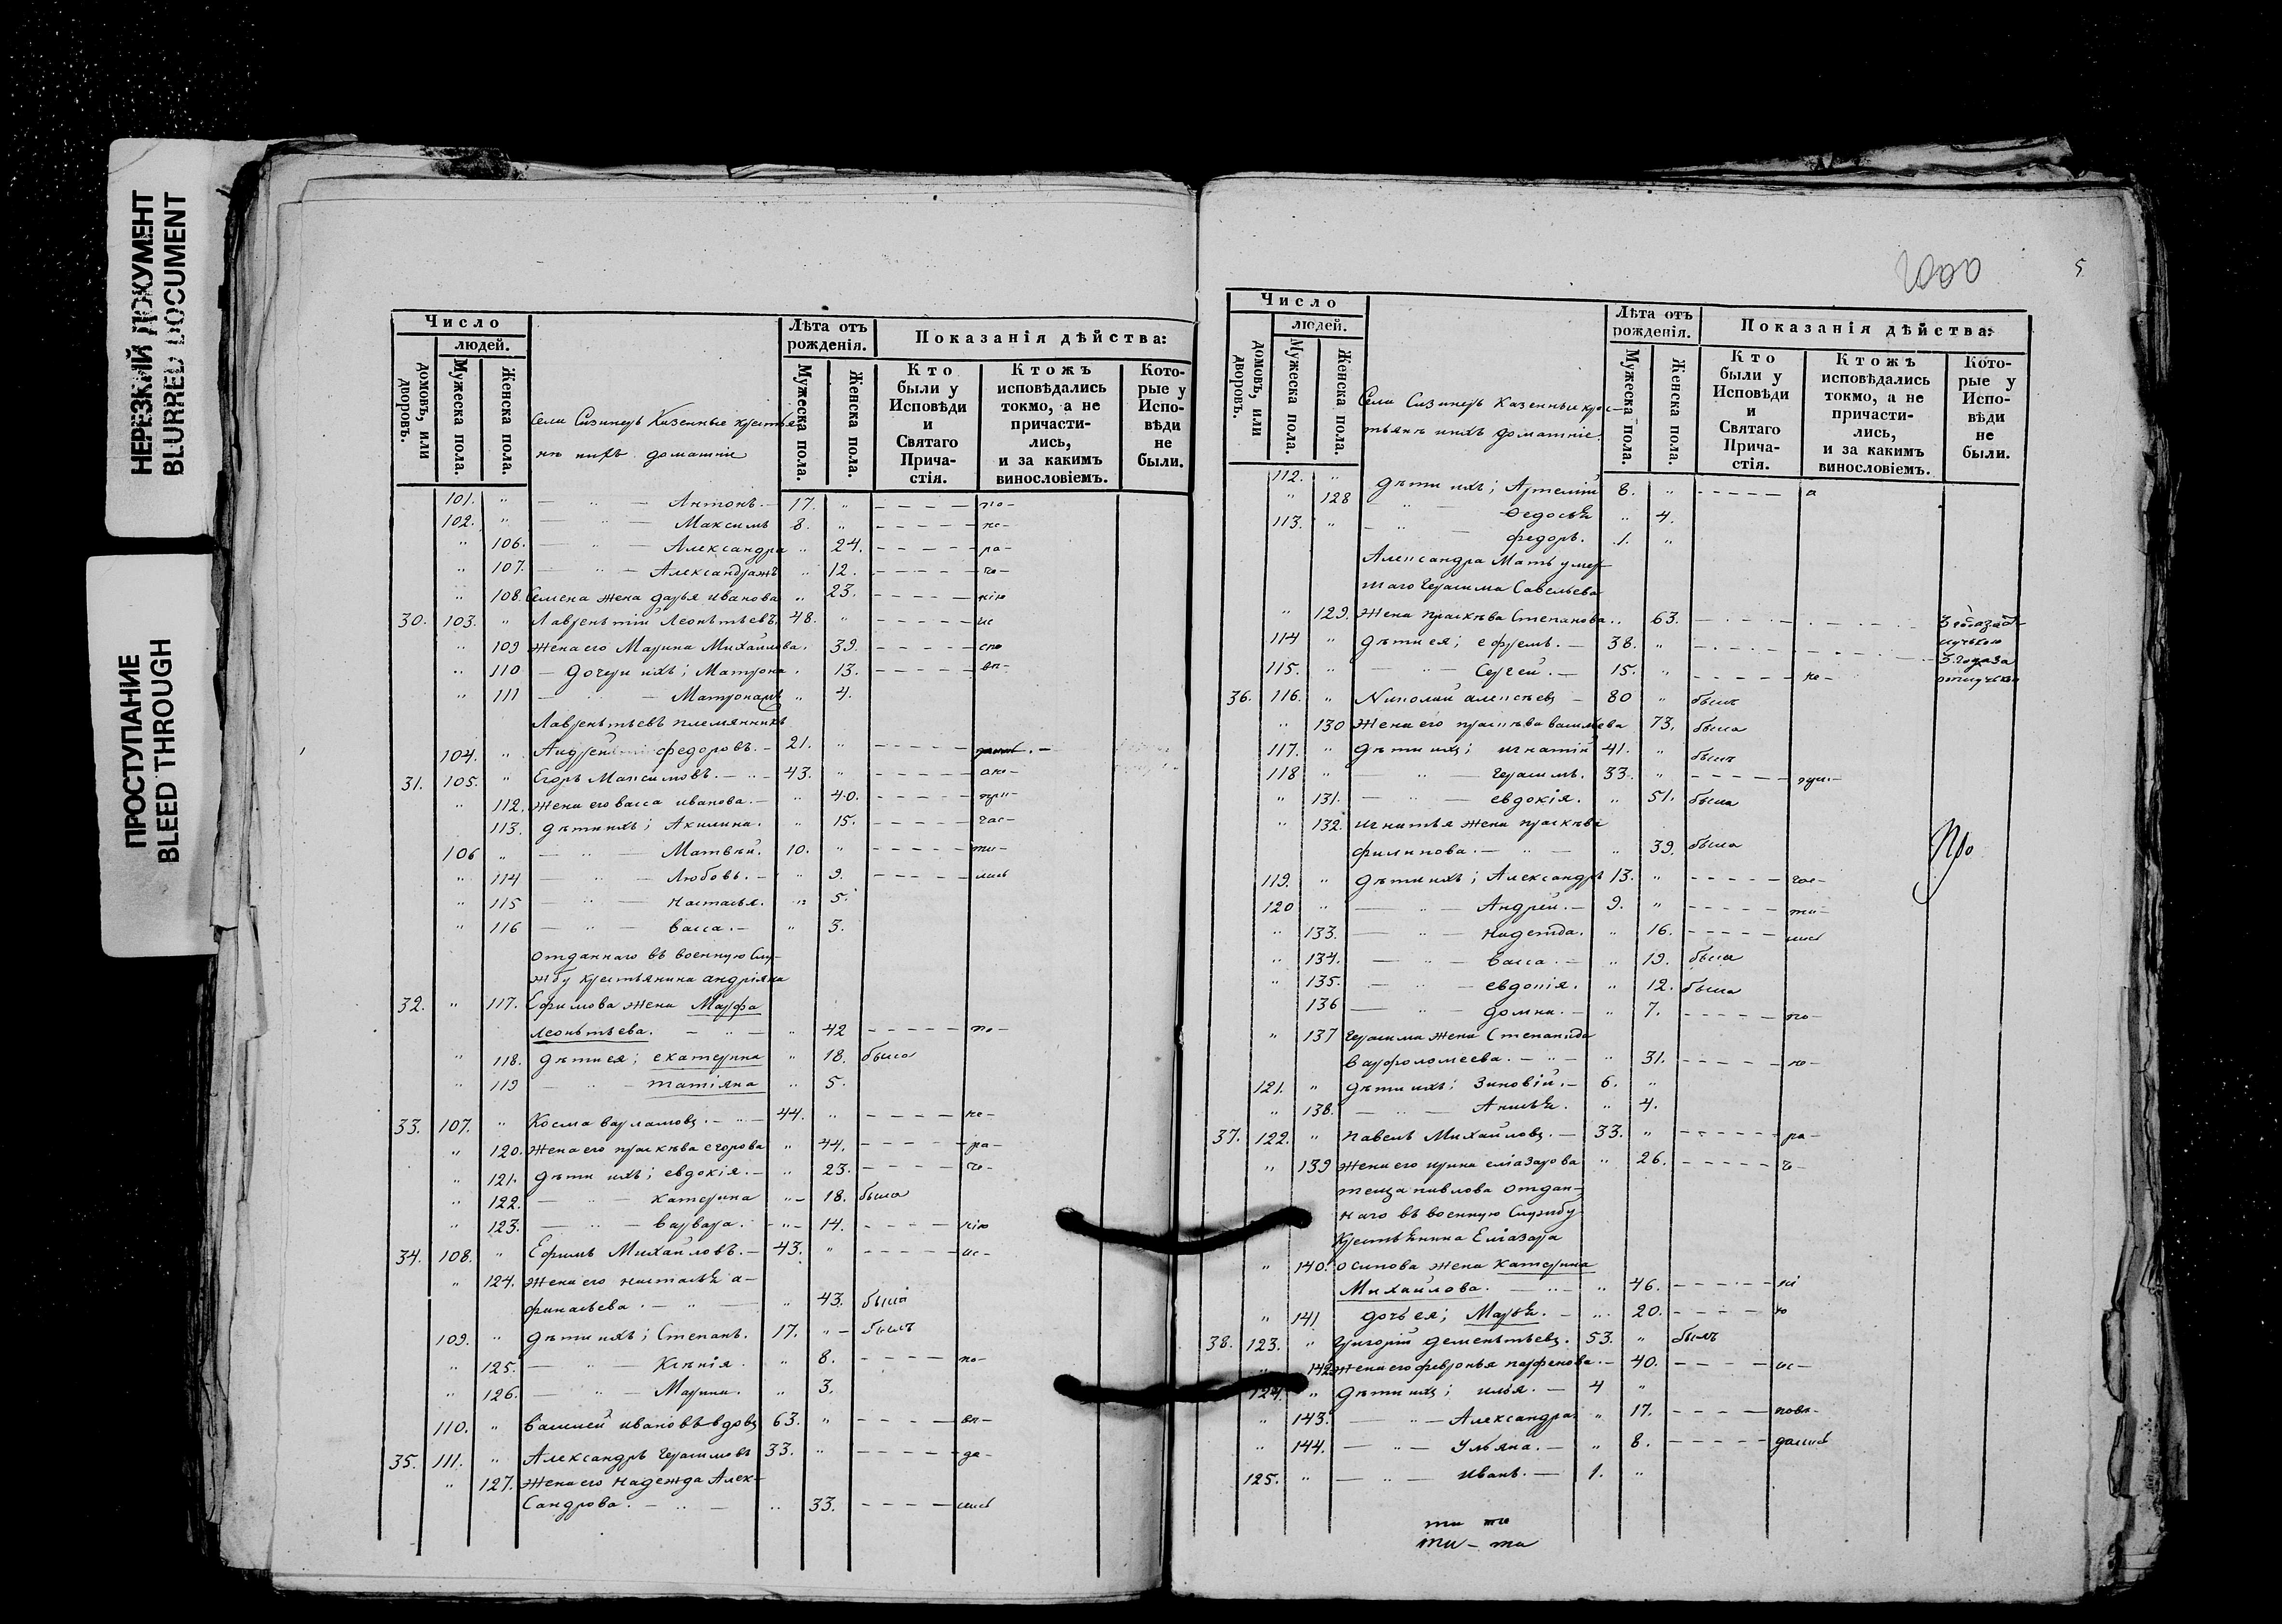 НЕРЕЗКИЙ ДОКУМЕНТ
BLURRED DOCUMENT
ПРОСТУПАНИЕ
BLEED THROUGH
Число
людей.
домовъ, или дворовъ.
Мужеска пола.
Женска пола.
Лѣта отъ рожденія.
Мужеска пола.
Женска пола.
Показанія дѣйства:
Кто были у Исповѣди и Святаго Прича-стія.
Ктожъ исповѣдались токмо, а не причасти-лись, и за какимъ винословіемъ.
Кото-рые у Испо-вѣди не были.
домашніе
101. " — " — Антонъ. — 17. " - - - - - по-
102. " — " — Максимъ 8. " - - - - - не-
" 106. — " — Александра " 24. - - - - - ра-
" 107. — " — Александра " 12. - - - - - че-
" 108. Семена жена дарья иванова " 23. - - - - - нію
30. 103. " Лаврентій Леонтьевъ. 48. " - - - - - ис
" 109 жена его Марина Михайлова. 39. - - - - - спо
" 110 — дочери ихъ; Матрона. 13. - - - - - вѣ-
" 111 — — Матрона " 4.
Лаврентьевъ племянникъ
104. " Андрей федоровъ. — 21. " - - - - -
31. 105. " Егоръ Максимовъ. — " — 43. " - - - - -
" 112. жена его васса иванова. — " 40. - - - - - при-
113. дѣти ихъ; Акилина. " 15. - - - - - час-
106 " — " — Матвѣй. 10. " - - - - - ти-
" 114 — " — Любовь. — " 9. - - - - - лись
" 115 — " — настасья. " 5.
" 116 — " — васса. — " 3.
отданнаго въ военную Слу-
жбу крестьянина андріяна
32. " 117. Ефимова жена Марфа
Леонтьева. — " — " 42 - - - - - по-
" 118. дѣти ея; екатерина " 18. была
" 119 — " — татіяна " 5.
33. 107. " Косма варламовъ. — " — 44. " - - - - - не-
" 120. жена его праскѣва егорова " 44. - - - - - ра-
" 121. дѣти ихъ; евдокія. — " 23. - - - - - че-
" 122. — " — катерина " — 18. была
" 123. — " — варвара. — " — 14. - - - - нію
34. 108. " Ефимъ Михайловъ. — 43. " - - - - - ис-
" 124. жена его настасья а-
" 43. была
109. " дѣти ихъ; Степанъ. 17. " — былъ
" 125. — " — Ксѣнія. " 8. - - - - по-
" 126. — " — Марина. " 3.
110. " василей ивановъ вдовъ 63. " - - - - вѣ-
35. 111. " Александръ Герасимовъ 33. " - - - - - да-
" 127. жена его надежда Алек-
Сандрова. — " — " 33. - - - - лись
5
Число
людей.
домовъ, или дворовъ.
Мужеска пола.
Женска пола.
Лѣта отъ рожденія.
Мужеска пола.
Женска пола.
Показанія дѣйства:
Кто были у Исповѣди и Святаго Прича-стія.
Ктожъ исповѣдались токмо, а не причасти-лись, и за какимъ винословіемъ.
Кото-рые у Испо-вѣди не были.
домашніе.
112. " дѣти ихъ; Артемій 8. " - - - - - а
" 128 — " — Ѳедосья " 4.
113. " — " — федоръ. 1. "
Александра Мать умер-
шаго Герасима Савельева
" 129. жена праскѣва Степанова. " 63.
114 " дѣти ея; ефремъ. — 38. "
115. " — — Сергей. — 15. " не-
36. 116. " Николай алексѣевъ — 80 " былъ
" 130 жена его праскѣва 73. была
117. " дѣти ихъ; игнатій 41. " былъ
118 " — " — Герасимъ. 33. " - - - - - при-
" 131. — " — евдокія. " 51. была
" 132. игнатья жена праскѣва
филипова. — " — " 39. была
Про
119. " дѣти ихъ; Александръ 13. " - - - - - час-
120 " — " — Андрей. — 9. " - - - - - ти-
" 133. — " — надежда. " 16. - - - - - лись
" 134. — " — васса. — " 19. была
" 135. — " — евдокія. " 12. была
136 — " — домна. — " 7. - - - - - по-
" 137 Герасима жена Степанида
варфоломеева. — " — " 31. - - - - - не-
121. " дѣти ихъ; Зиновій. — 6. "
" 138. — " — " 4.
37. 122. " павелъ Михайловъ. — 33. " - - - - - ра-
" 139 жена его ирина еліазарова " 26. - - - - - че-
теща павлова отдан-
наго въ военную Службу
крестьянина Еліазара
" 140. осипова жена Катерина
Михайлова. — " — " 46. - - - - - ні
" 141 дочь ея; Марья. — " 20. - - - - ю
38. 123. " Григорій дементьевъ. 53. " былъ
" 142 жена его февронья парфенова. — 40. - - - - ис-
124. " дѣти ихъ; илья. — 4 "
" 143. — " — Александра " 17. - - - - повѣ-
" 144. — " — Ульяна. — " 8. - - - - - дались
125. " — " — иванъ. — 1. "